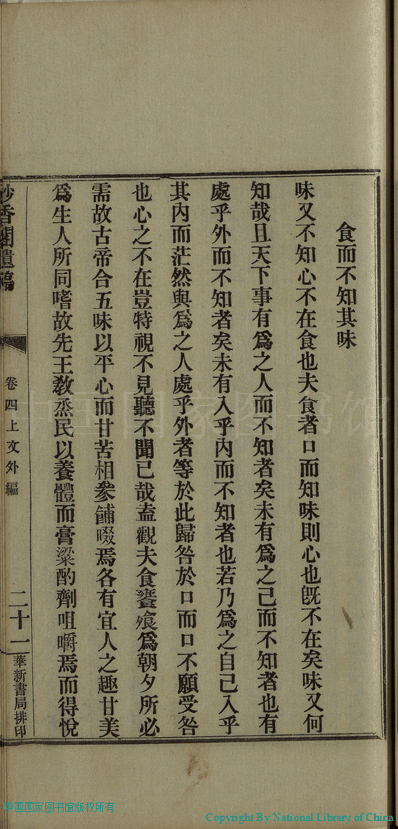 食而不知其味
味又不知心不在食也夫食者口而知味則心也旣不在矣味又何
知哉且天下事有爲之人而不知者矣未有爲之己而不知者也有
處乎外而不知者矣未有入乎內而不知者也若乃爲之自己入乎
其內而茫然與爲之人處乎外者等於此歸咎於口而口不願受咎
也心之不在豈特視不見聽不聞已哉盍觀夫食饔飱爲朝夕所必
需故古帝合五味以平心而甘苦相參餔啜焉各有宜人之趣甘美
爲生人所同嗜故先王敎烝民以養體而膏粱酌劑咀嚼焉而得悅
妙香閣遺稿
卷四上文外編
二十一
華新書局排印
中国国家图书馆版权所有
Copyright By National Library of China